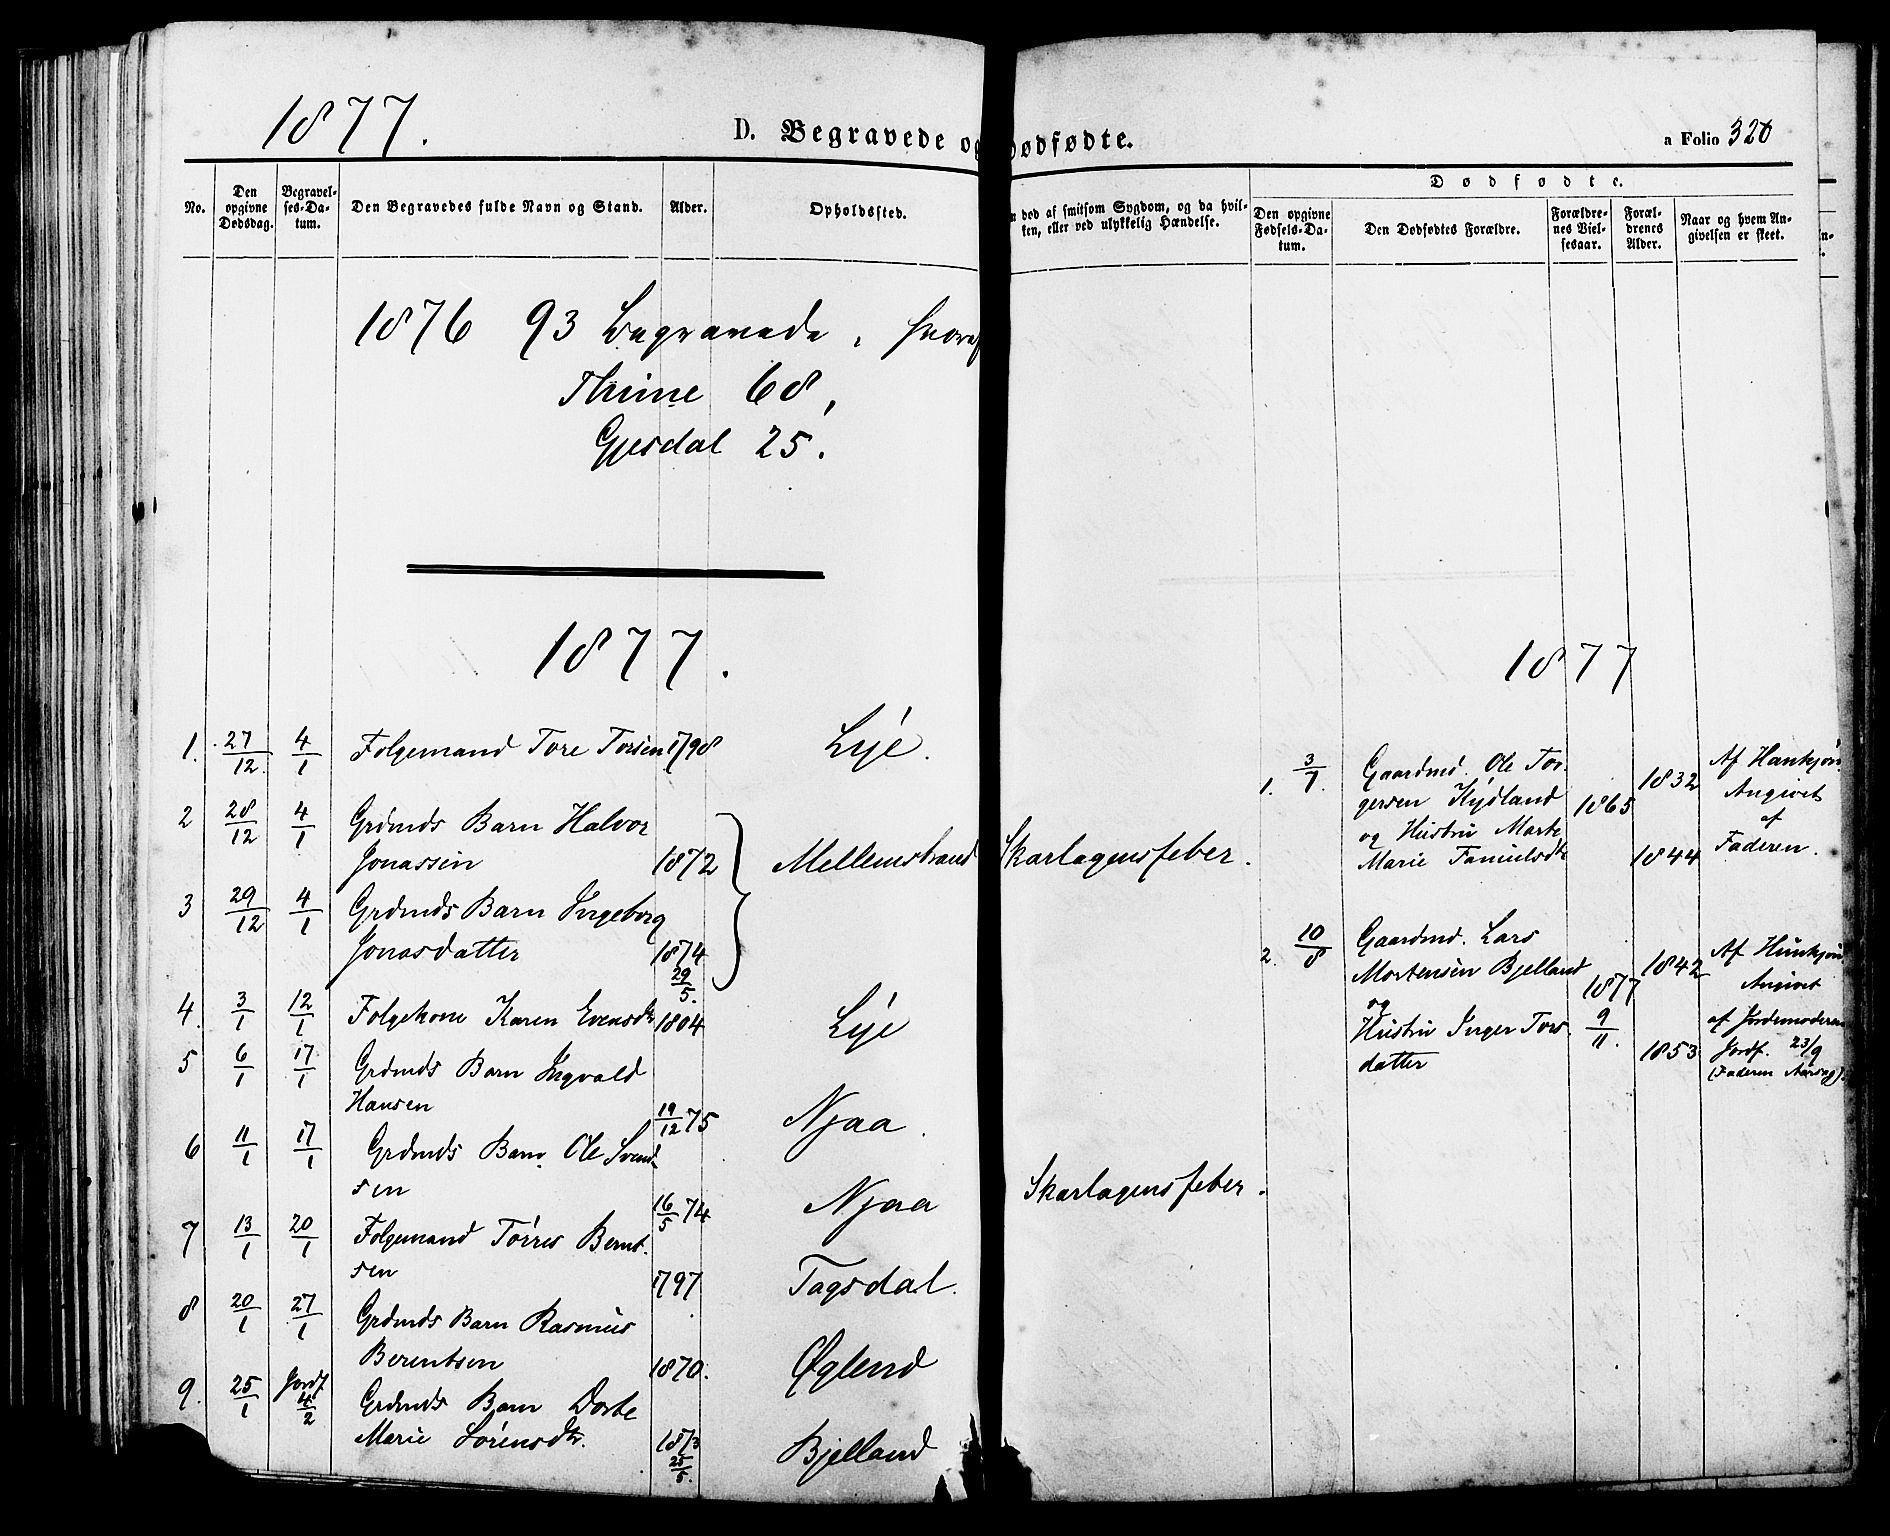 1877.
D. Begravede og Dødfødte.
a Folio 320
No.
Den opgivne Dødsdag.
Begravelses-Datum.
Den Begravedes fulde Navn og Stand.
Alder.
Opholdssted.
død af smitsom Sygdom, og da hvilken, eller ved ulykkelig Hændelse.
Dødfødte.
Den opgivne Fødsels-Datum.
Den Dødfødtes Forældre.
Forældrenes Vielsesaar.
Forældrenes Alder.
Naar og hvem Angivelsen er skeet.
1876 93 Begravede, hvoraf
Thime 68,
Gjesdal 25.
1877.
1. 27/12. 4/1 Folgemand Tore Torsen 1798 Lye.
2 28/12 4/1 Grdmds Barn Halvor
Jonassen 1872 Mellemstrand Skarlagensfeber.
3 29/12 4/1 Grdmds Barn Ingeborg
Jonasdatter 1874
29/5.
4. 3/1 12/1 Folgekone Karen Evensdtr 1804 Lye
5 6/1 17/1 Grdmds Barn Ingvald
Hansen 19/12 75 Njaa.
6 11/1 17/1 Grdmds Barn Ole Svend-
sen 16/5 74 Njaa Skarlagensfeber.
7 13/1 20/1 Folgemand Tórres Bernt-
sen 1797 Tagsdal.
8 20/1 27/1 Grdmds Barn Rasmus
Berentsen 1870. Øglend
9. 25/1 Jordf
4/2 Grdmds Barn Dorte
Marie Sórensdtr. 1873
25/5. Bjelland
1877
1. 3/7. Gaardmd. Ole Tor-
gersen Kydland
og Hustru Marte
Marie 1865 1832
1844 Af Hankjøn.
Angivet
af
Faderen.
2. 10/8 Gaardmd. Lars
Mortensen Bjelland
og
Hustru Inger Tors-
datter 1877
9/11. 1842
1853 Af Hunkjøn
Angivet
af Jordemoderen
Jordf. 23/9
(Faderen